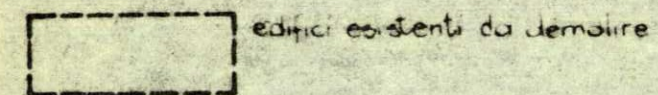 edifici esistenti da demolire